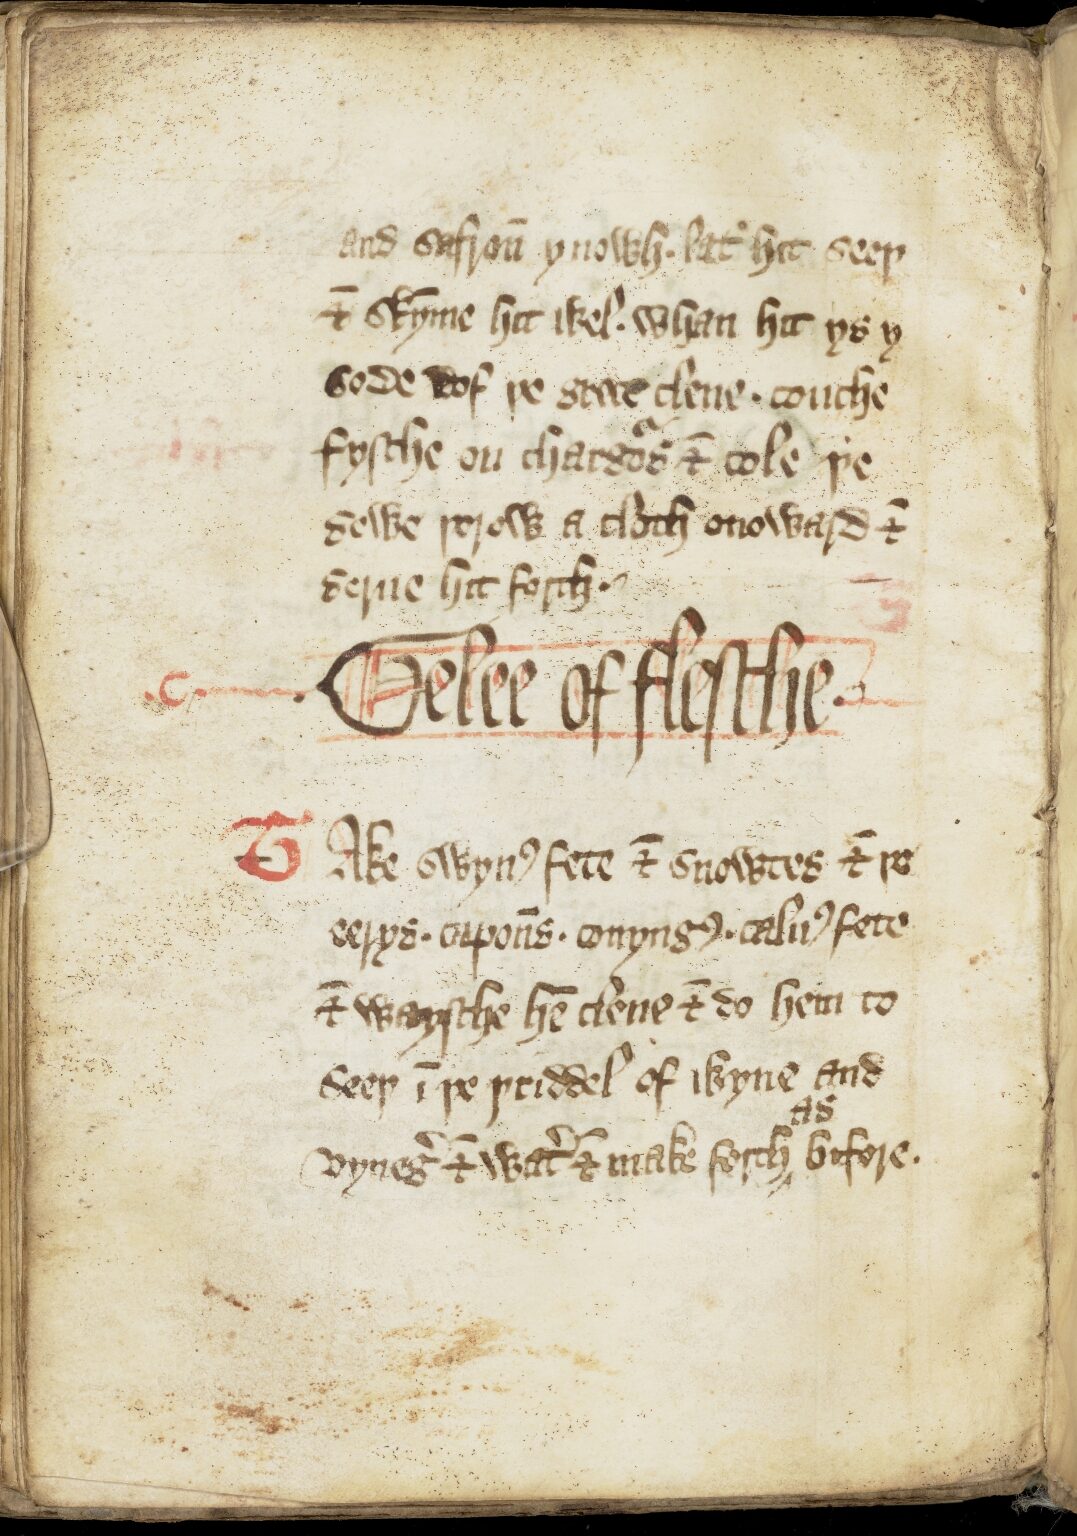 and safroū ynowh · lat hit seeþ
⁊ skȳme hit wel · whan hit ys y
sode dof þe grece clene · couche
fysche on chargoᵃs ⁊ cole þe
sewe þorow a cloth onoward ⁊
serue hit forth ·
· c · Gelee of flesche ·
TAke swynꝰ fete ⁊ snowtes ⁊ þe
eerys · capoūs · conyngꝰ · caluꝰ fete
⁊ waysche hē clene ⁊ do hem to
seeþ ī þe þriddel of wyne and
vyneg̉ ⁊ wat̉ ⁊ make forth as bifore ·